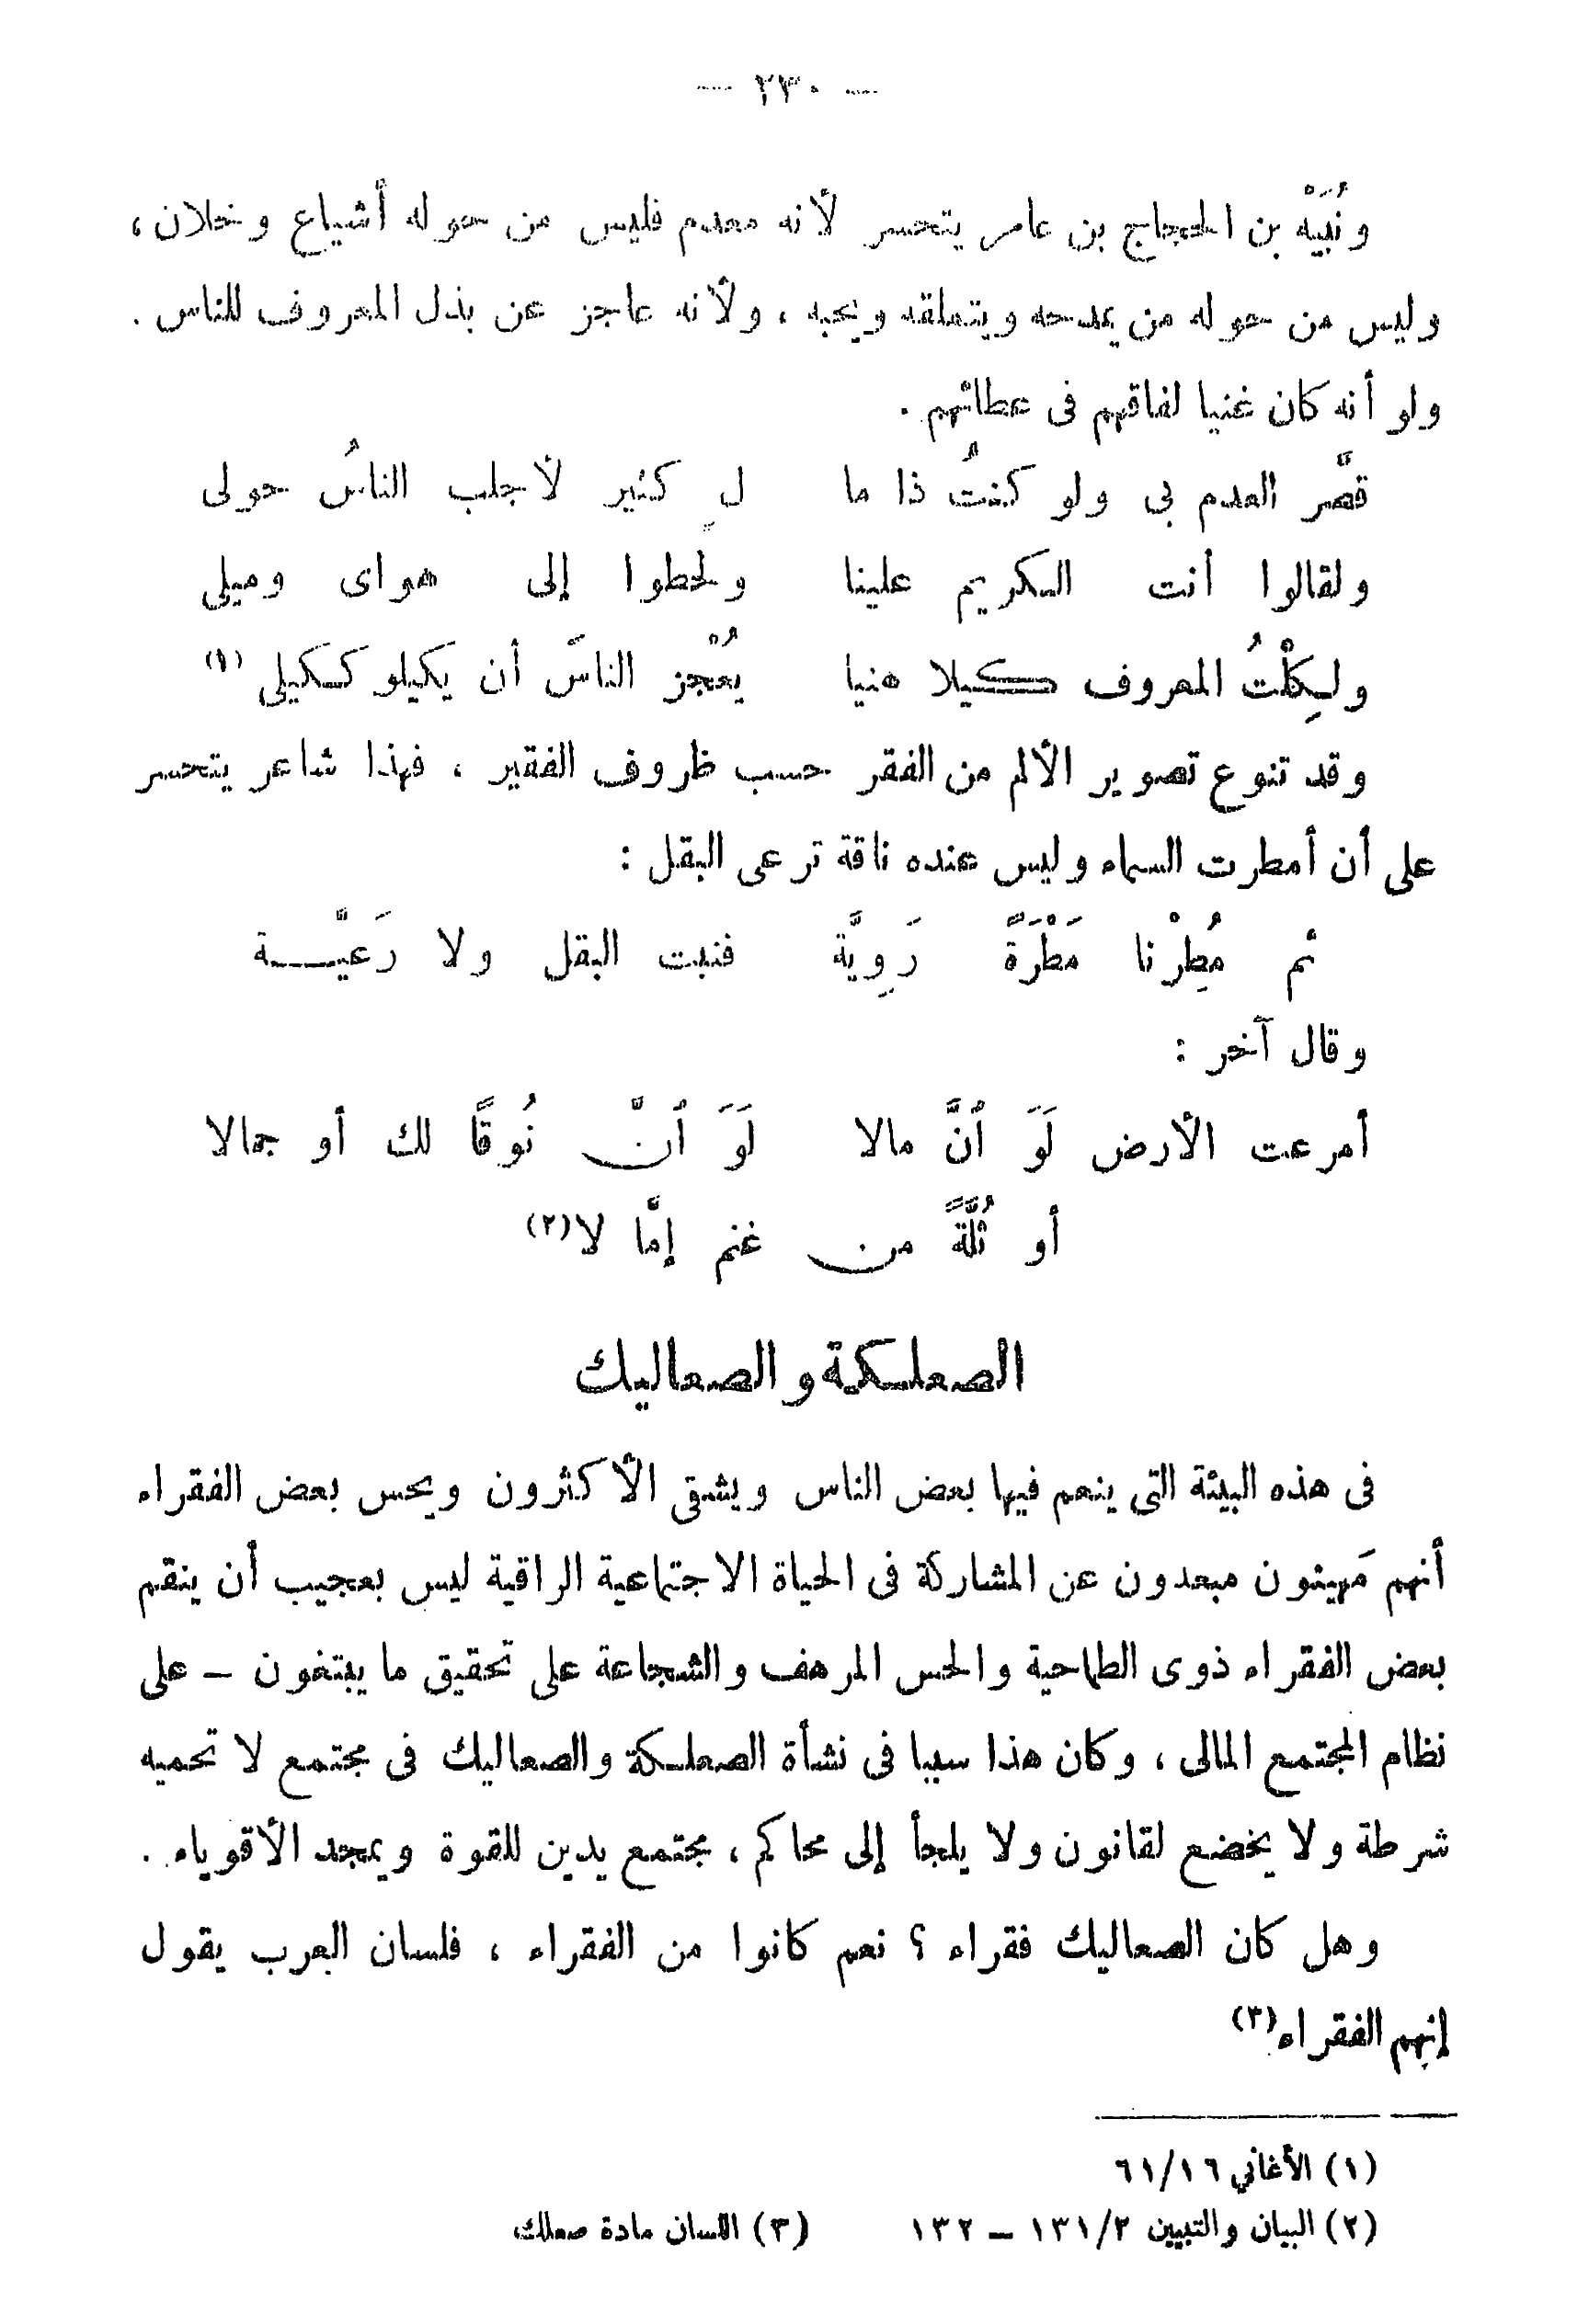 — ٢٣٠ —
ونُبَيْه بن الحجاج بن عامر يتحسر لأنه معدم فليس من حوله أشياع وخلان ،
وليس من حوله من يمدحه ويتملقه ويحبه ، ولأنه عاجز عن بذل المعروف للناس .
ولو أنه كان غنيا لفاقهم فى عطائهم .
قصَّر العدم بى ولو كنتُ ذا ما لٍ كثير لأجلب الناسُ حولى
ولقالوا أنت الكريم علينا ولحطوا إلى هواى وميلى
ولكِلْتُ المعروف كيلا هنيا يُعْجز الناسَ أن يكيلو ككيلى (١)
وقد تنوع تصوير الألم من الفقر حسب ظروف الفقير ، فهذا شاعر يتحسر
على أن أمطرت السماء وليس عنده ناقة ترعى البقل :
ثم مُطِرْنا مَطْرَةً رَوِيَّة فنبت البقل ولا رَعيَّـــة
وقال آخر :
أمرعت الأرض لَوَ أنَّ مالا لَوَ أنَّ نُوقًا لك أو جمالا
أو ثُلَّةً من غنم إمَّا لا(٢)
الصعلكة والصعاليك
فى هذه البيئة التى ينعم فيها بعض الناس ويشقى الأكثرون ويحس بعض الفقراء
أنهم مَهينون مبعدون عن المشاركة فى الحياة الاجتماعية الراقية ليس بعجيب أن ينقم
بعض الفقراء ذوى الطماحية والحس المرهف والشجاعة على تحقيق ما يبتغون – على
نظام المجتمع المالى ، وكان هذا سببا فى نشأة الصعلكة والصعاليك فى مجتمع لا تحميه
شرطة ولا يخضع لقانون ولا يلجأ إلى محاكم ، مجتمع يدين للقوة ويمجد الأقوياء .
وهل كان الصعاليك فقراء ؟ نعم كانوا من الفقراء ، فلسان العرب يقول
إنهم الفقراء(٣)
(١) الأغاني ٦١/١٦
(٢) البيان والتبيين ١٣١/٢ – ١٣٢ (٣) اللسان مادة صعلك